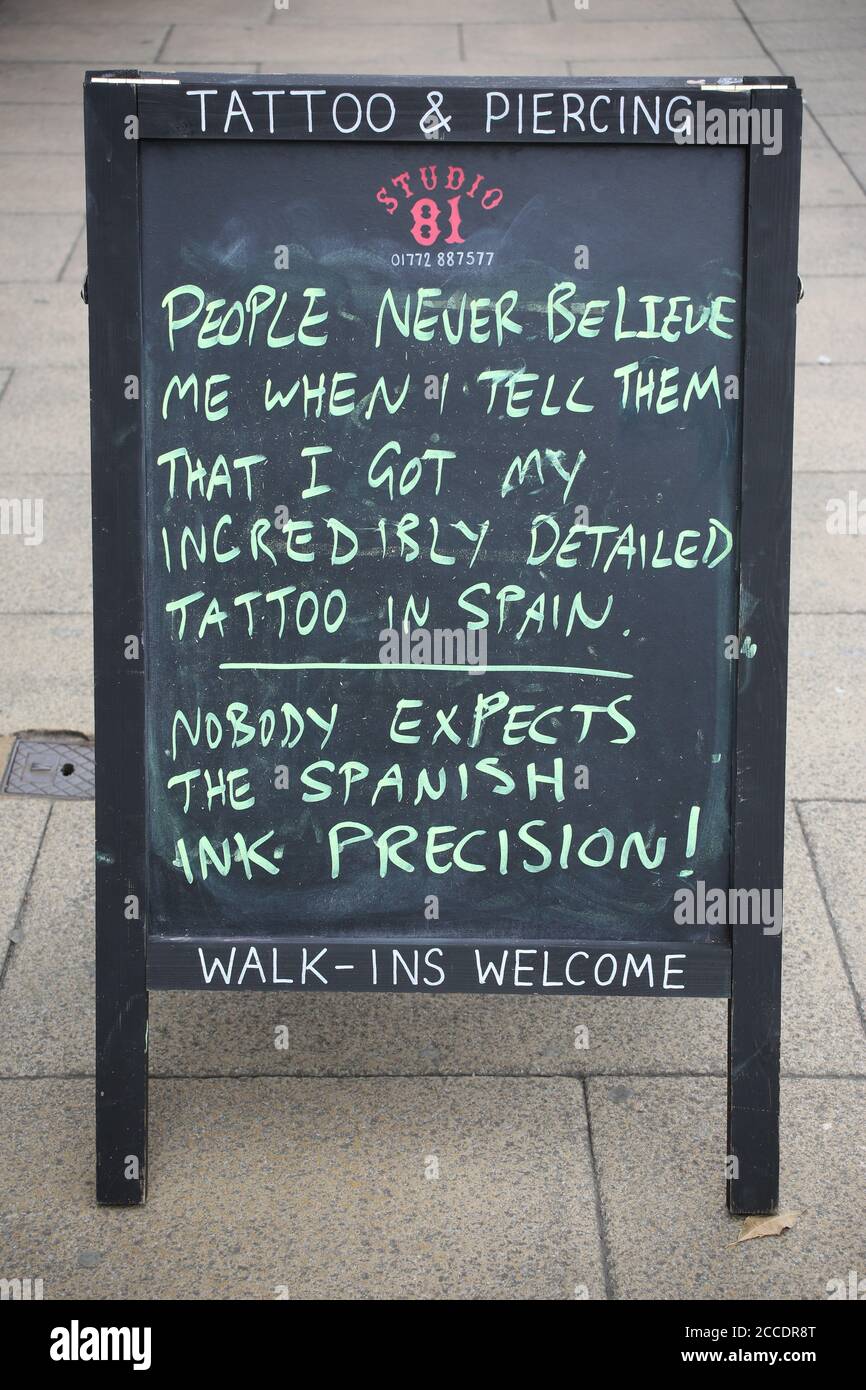 TATTOO & PIERCING
STUDIO
81
01772 887577
PEOPLE NEVER BELIEVE
ME WHEN I TELL THEM
THAT I GOT MY
INCREDIBLY DETAILED
TATTOO IN SPAIN.
NOBODY EXPECTS
THE SPANISH
INK PRECISION!
WALK-INS WELCOME
alamy
Image ID: 2CCDR8T
www.alamy.com